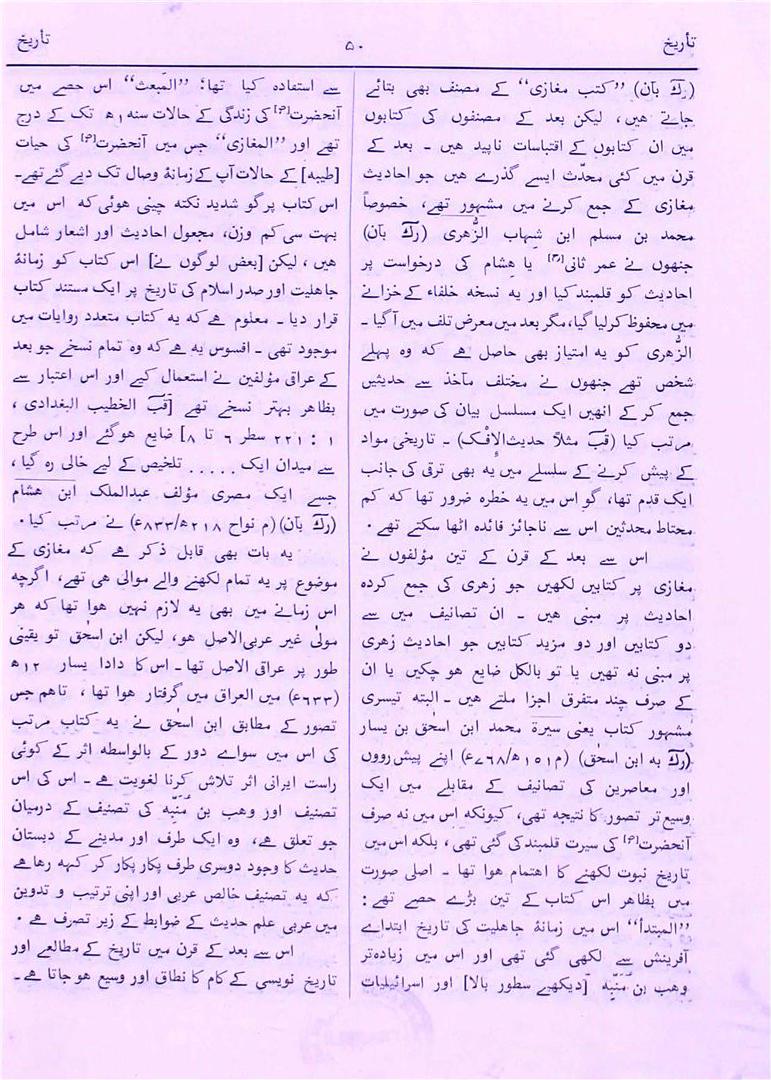 تأریخ
۵۰
تأریخ
(رک بآن) ”کتب مغازی“ کے مصنف بھی بتائے
جاتے ھیں، لیکن بعد کے مصنفوں کی کتابوں
میں ان کتابوں کے اقتباسات ناپید ھیں ۔ بعد کے
قرن میں کئی محدّث ایسے گذرے ھیں جو احادیث
مغازی کے جمع کرنے میں مشہور تھے، خصوصاً
محمد بن مسلم ابن شہاب الزُّھری (رک بآن)
جنھوں نے عمر ثانی[رح] یا ھشام کی درخواست پر
احادیث کو قلمبند کیا اور یہ نسخہ خلفاء کے خزانے
میں محفوظ کر لیا گیا، مگر بعد میں معرض تلف میں آ گیا ۔
الزُّھری کو یہ امتیاز بھی حاصل ھے کہ وہ پہلے
شخص تھے جنھوں نے مختلف مآخذ سے حدیثیں
جمع کر کے انھیں ایک مسلسل بیان کی صورت میں
مرتب کیا (قب مثلاً حدیث الإفک) ۔ تاریخی مواد
کے پیش کرنے کے سلسلے میں یہ بھی ترقی کی جانب
ایک قدم تھا، گو اس میں یہ خطرہ ضرور تھا کہ کم
محتاط محدثین اس سے ناجائز فائدہ اٹھا سکتے تھے ۔
اس سے بعد کے قرن کے تین مؤلفوں نے
مغازی پر کتابیں لکھیں جو زھری کی جمع کردہ
احادیث پر مبنی ھیں ۔ ان تصانیف میں سے
دو کتابیں اور دو مزید کتابیں جو احادیث زھری
پر مبنی نہ تھیں یا تو بالکل ضایع ھو چکیں یا ان
کے صرف چند متفرق اجزا ملتے ھیں ۔ البتہ تیسری
مشہور کتاب یعنی سیرۃ محمد ابن اسحٰق بن یسار
(رک بہ ابن اسحٰق) (م ۱۵۱ھ/۷۶۸ء) اپنے پیش رووں
اور معاصرین کی تصانیف کے مقابلے میں ایک
وسیع تر تصور کا نتیجہ تھی، کیونکہ اس میں نہ صرف
آنحضرت[ص] کی سیرت قلمبند کی گئی تھی، بلکہ اس میں
تاریخ نبوت لکھنے کا اھتمام ھوا تھا ۔ اصلی صورت
میں بظاھر اس کتاب کے تین بڑے حصے تھے :
”المبتدأ“ اس میں زمانۂ جاھلیت کی تاریخ ابتداے
آفرینش سے لکھی گئی تھی اور اس میں زیادہ تر
وھب بن مُنَبِّہ [دیکھیے سطور بالا] اور اسرائیلیات
سے استفادہ کیا تھا؛ ”المَبعث“ اس حصے میں
آنحضرت[ص] کی زندگی کے حالات سنہ ۱ھ تک کے درج
تھے اور ”المغازی“ جس میں آنحضرت[ص] کی حیات
[طیبہ] کے حالات آپ کے زمانۂ وصال تک دیے گئے تھے ۔
اس کتاب پر گو شدید نکتہ چینی ھوئی کہ اس میں
بہت سی کم وزن، مجعول احادیث اور اشعار شامل
ھیں، لیکن [بعض لوگوں نے] اس کتاب کو زمانۂ
جاھلیت اور صدر اسلام کی تاریخ پر ایک مستند کتاب
قرار دیا ۔ معلوم ھے کہ یہ کتاب متعدد روایات میں
موجود تھی ۔ افسوس یہ ھے کہ وہ تمام نسخے جو بعد
کے عراقی مؤلفین نے استعمال کیے اور اس اعتبار سے
بظاھر بہتر نسخے تھے [قب الخطیب البغدادی ،
۱ : ۲۲۱ سطر ۶ تا ۸] ضایع ھوگئے اور اس طرح
سے میدان ایک ..... تلخیص کے لیے خالی رہ گیا ،
جسے ایک مصری مؤلف عبدالملک ابن ھشام
(رک بآن) (م نواح ۲۱۸ھ/۸۳۳ء) نے مرتب کیا ۔
یہ بات بھی قابل ذکر ھے کہ مغازی کے
موضوع پر یہ تمام لکھنے والے موالی ھی تھے، اگرچہ
اس زمانے میں بھی یہ لازم نہیں ھوا تھا کہ ھر
مولیٰ غیر عربی الاصل ھو، لیکن ابن اسحٰق تو یقینی
طور پر عراقی الاصل تھا ۔ اس کا دادا یسار ۱۲ھ
(۶۳۳ء) میں العراق میں گرفتار ھوا تھا ، تاھم جس
تصور کے مطابق ابن اسحٰق نے یہ کتاب مرتب
کی اس میں سواے دور کے بالواسطہ اثر کے کوئی
راست ایرانی اثر تلاش کرنا لغویت ھے ۔ اس کی اس
تصنیف اور وھب بن مُنَبِّہ کی تصنیف کے درمیان
جو تعلق ھے، وہ ایک طرف اور مدینے کے دبستان
حدیث کا وجود دوسری طرف پکار پکار کر کہہ رھا ھے
کہ یہ تصنیف خالص عربی اور اپنی ترتیب و تدوین
میں عربی علم حدیث کے ضوابط کے زیر تصرف ھے ۔
اس سے بعد کے قرن میں تاریخ کے مطالعے اور
تاریخ نویسی کے کام کا نطاق اور وسیع ھو جاتا ھے ۔